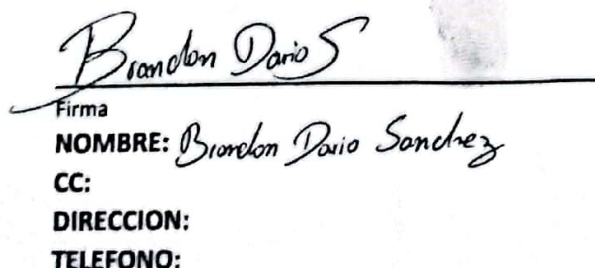 Brandon Dario S
Firma
NOMBRE: Brandon Dario Sanchez
CC:
DIRECCION:
TELEFONO: